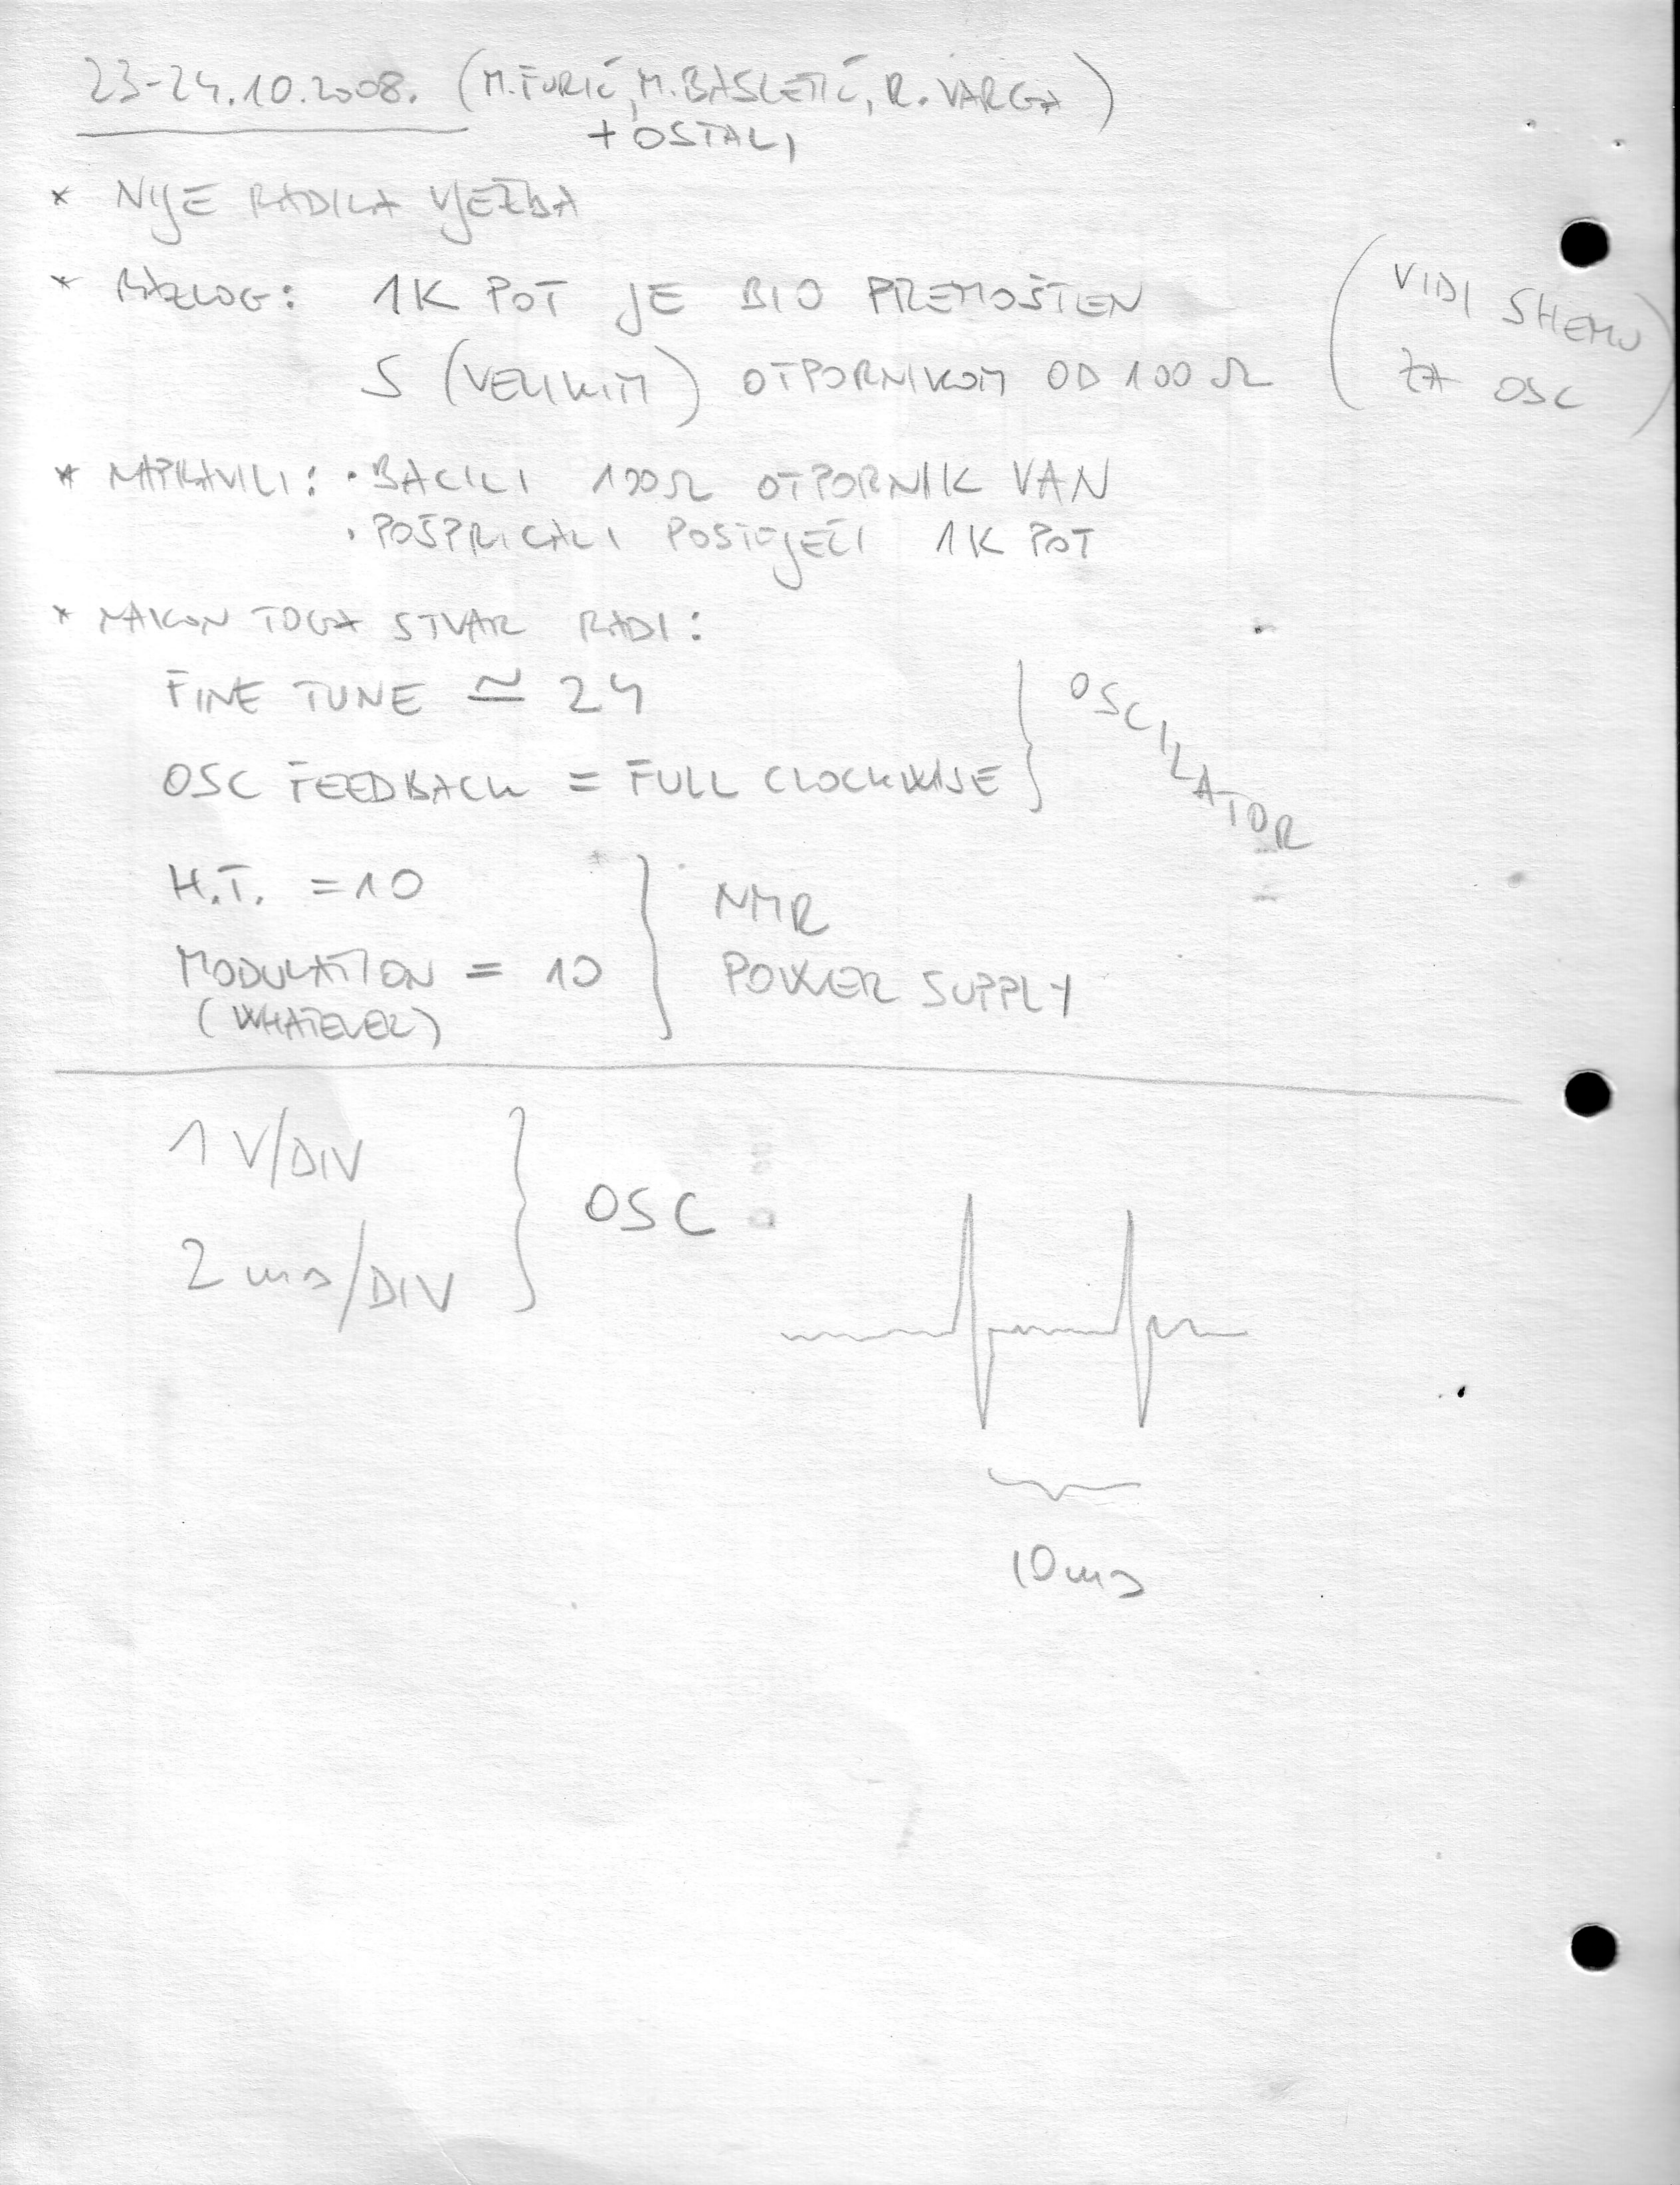 23-24.10.2008. (M. FURIĆ, M. BASLETIĆ, R. VARGA)
+ OSTALI
* NIJE RADILA VJEŽBA
* RAZLOG: 1K POT JE BIO PREMOŠTEN
S (VELIKIM) OTPORNIKOM OD 100 Ω
(VIDI SHEMU
ZA OSC)
* NAPRAVILI: · BACILI 100Ω OTPORNIK VAN
· POŠPRICALI POSTOJEĆI 1K POT
* NAKON TOGA STVAR RADI:
FINE TUNE ≃ 24
OSC FEEDBACK = FULL CLOCKWISE
OSCILATOR
H.T. = 10
MODULATION = 10
(WHATEVER)
NMR
POWER SUPPLY
1 V/DIV
2 ms/DIV
OSC
10 ms